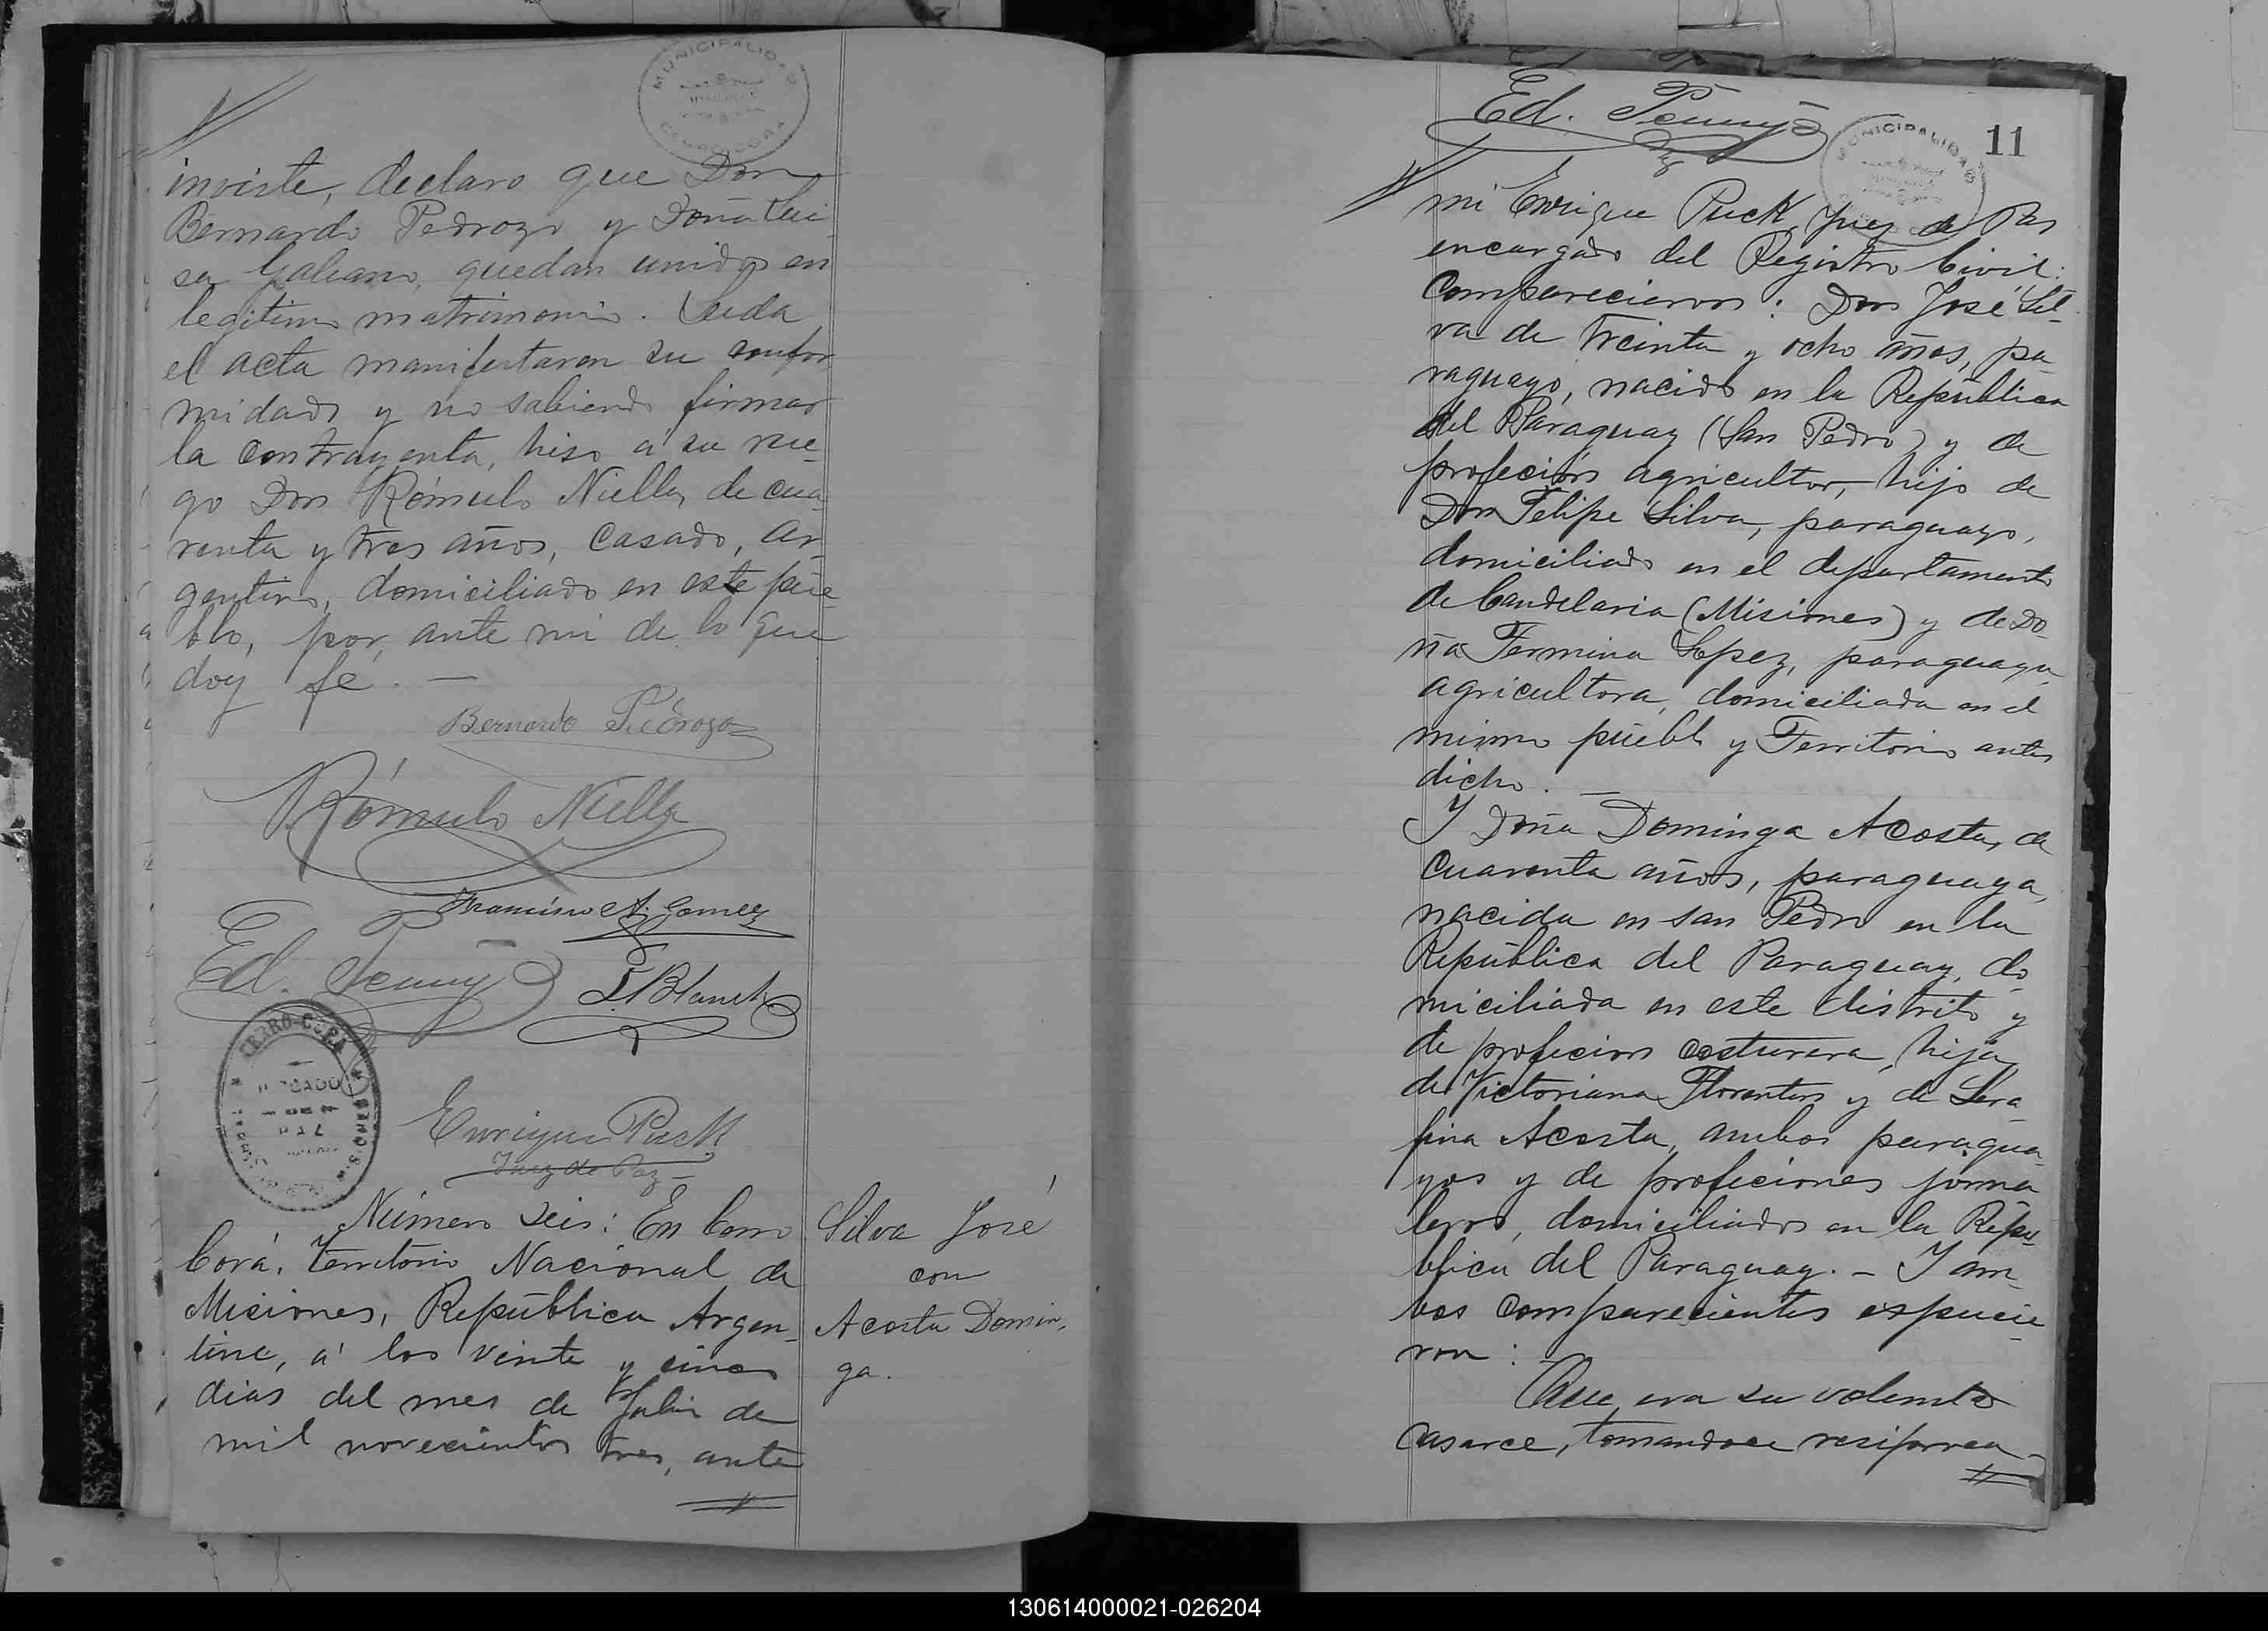 MUNICIPALIDAD
inviste, declaro que Don
Bernardo Pedrozo y Doña Lui
sa Galeano, quedan unidos en
legitimo matrimonio. Leida
el acta manifestaron su confor
midad y no sabiendo firmar
la contrayenta, hiso á su rue-
go Don Rómulo Niella, de cua-
renta y tres años, Casado, Ar-
gentino, domiciliado en este pue-
blo, por ante mi de lo que
doy fé. —
Bernardo Pedrozo
Rómulo Niella
Francisco A. Gomez
Ed.
CERRO-CORÁ
JUZGADO
DE
PAZ
Enrique Puck
Juez de Paz
Número seis: En Cerro
Corá, Territorio Nacional de
Misiones, República Argen-
tina, á los veinte y cinco
dias del mes de Julio de
mil novecientos tres, ante
Silva José
con
Acosta Domin-
ga.
Ed.
MUNICIPALIDAD
11
mi Enrique Puck Juez de Pas
encargado del Registro Civil:
Comparecieron: Don José Sil-
va de treinta y ocho años, pa-
raguayo, nacido en la República
del Paraguay (San Pedro) y de
profeción agricultor, hijo de
Don Felipe Silva, paraguayo,
domiciliado en el departamento
de Candelaria (Misiones) y de Do-
ña Fermina Lopez, paraguaya
agricultora, domiciliada en el
mismo pueblo y Territorio antes
dicho. —
Y Doña Dominga Acosta, de
cuarenta años, paraguaya,
nacida en san Pedro en la
República del Paraguay, do-
miciliada en este distrito y
de profecion costurera, hija
de Victoriana Florentin y de Sera
fina Acosta, ambos paragua-
yos y de profeciones jorna
leros, domiciliados en la Repu-
blica del Paraguay. — Y am-
bos comparecientes espucie-
ron:
Que era su volunta
casarce, tomandoce resiproca
130614000021-026204